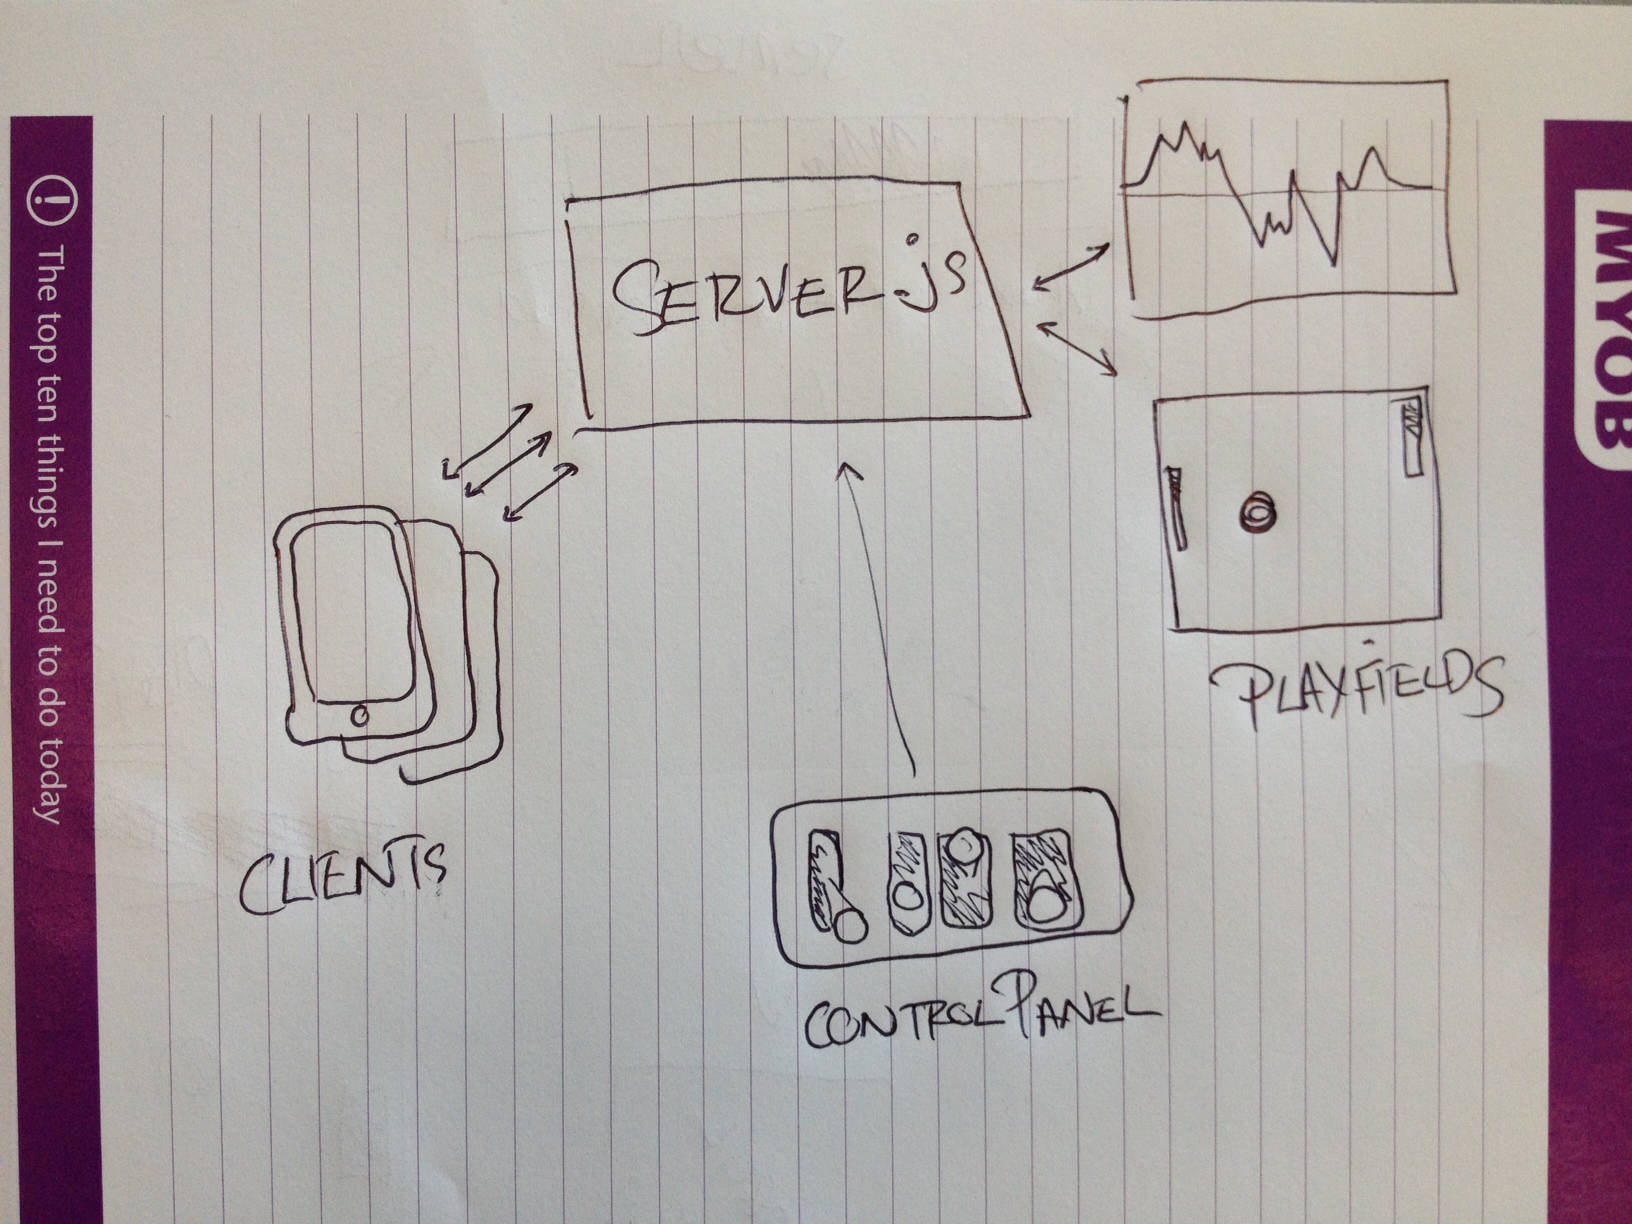 The top ten things I need to do today
CLIENTS
SERVER.js
CONTROL PANEL
PLAYFIELDS
MYOB